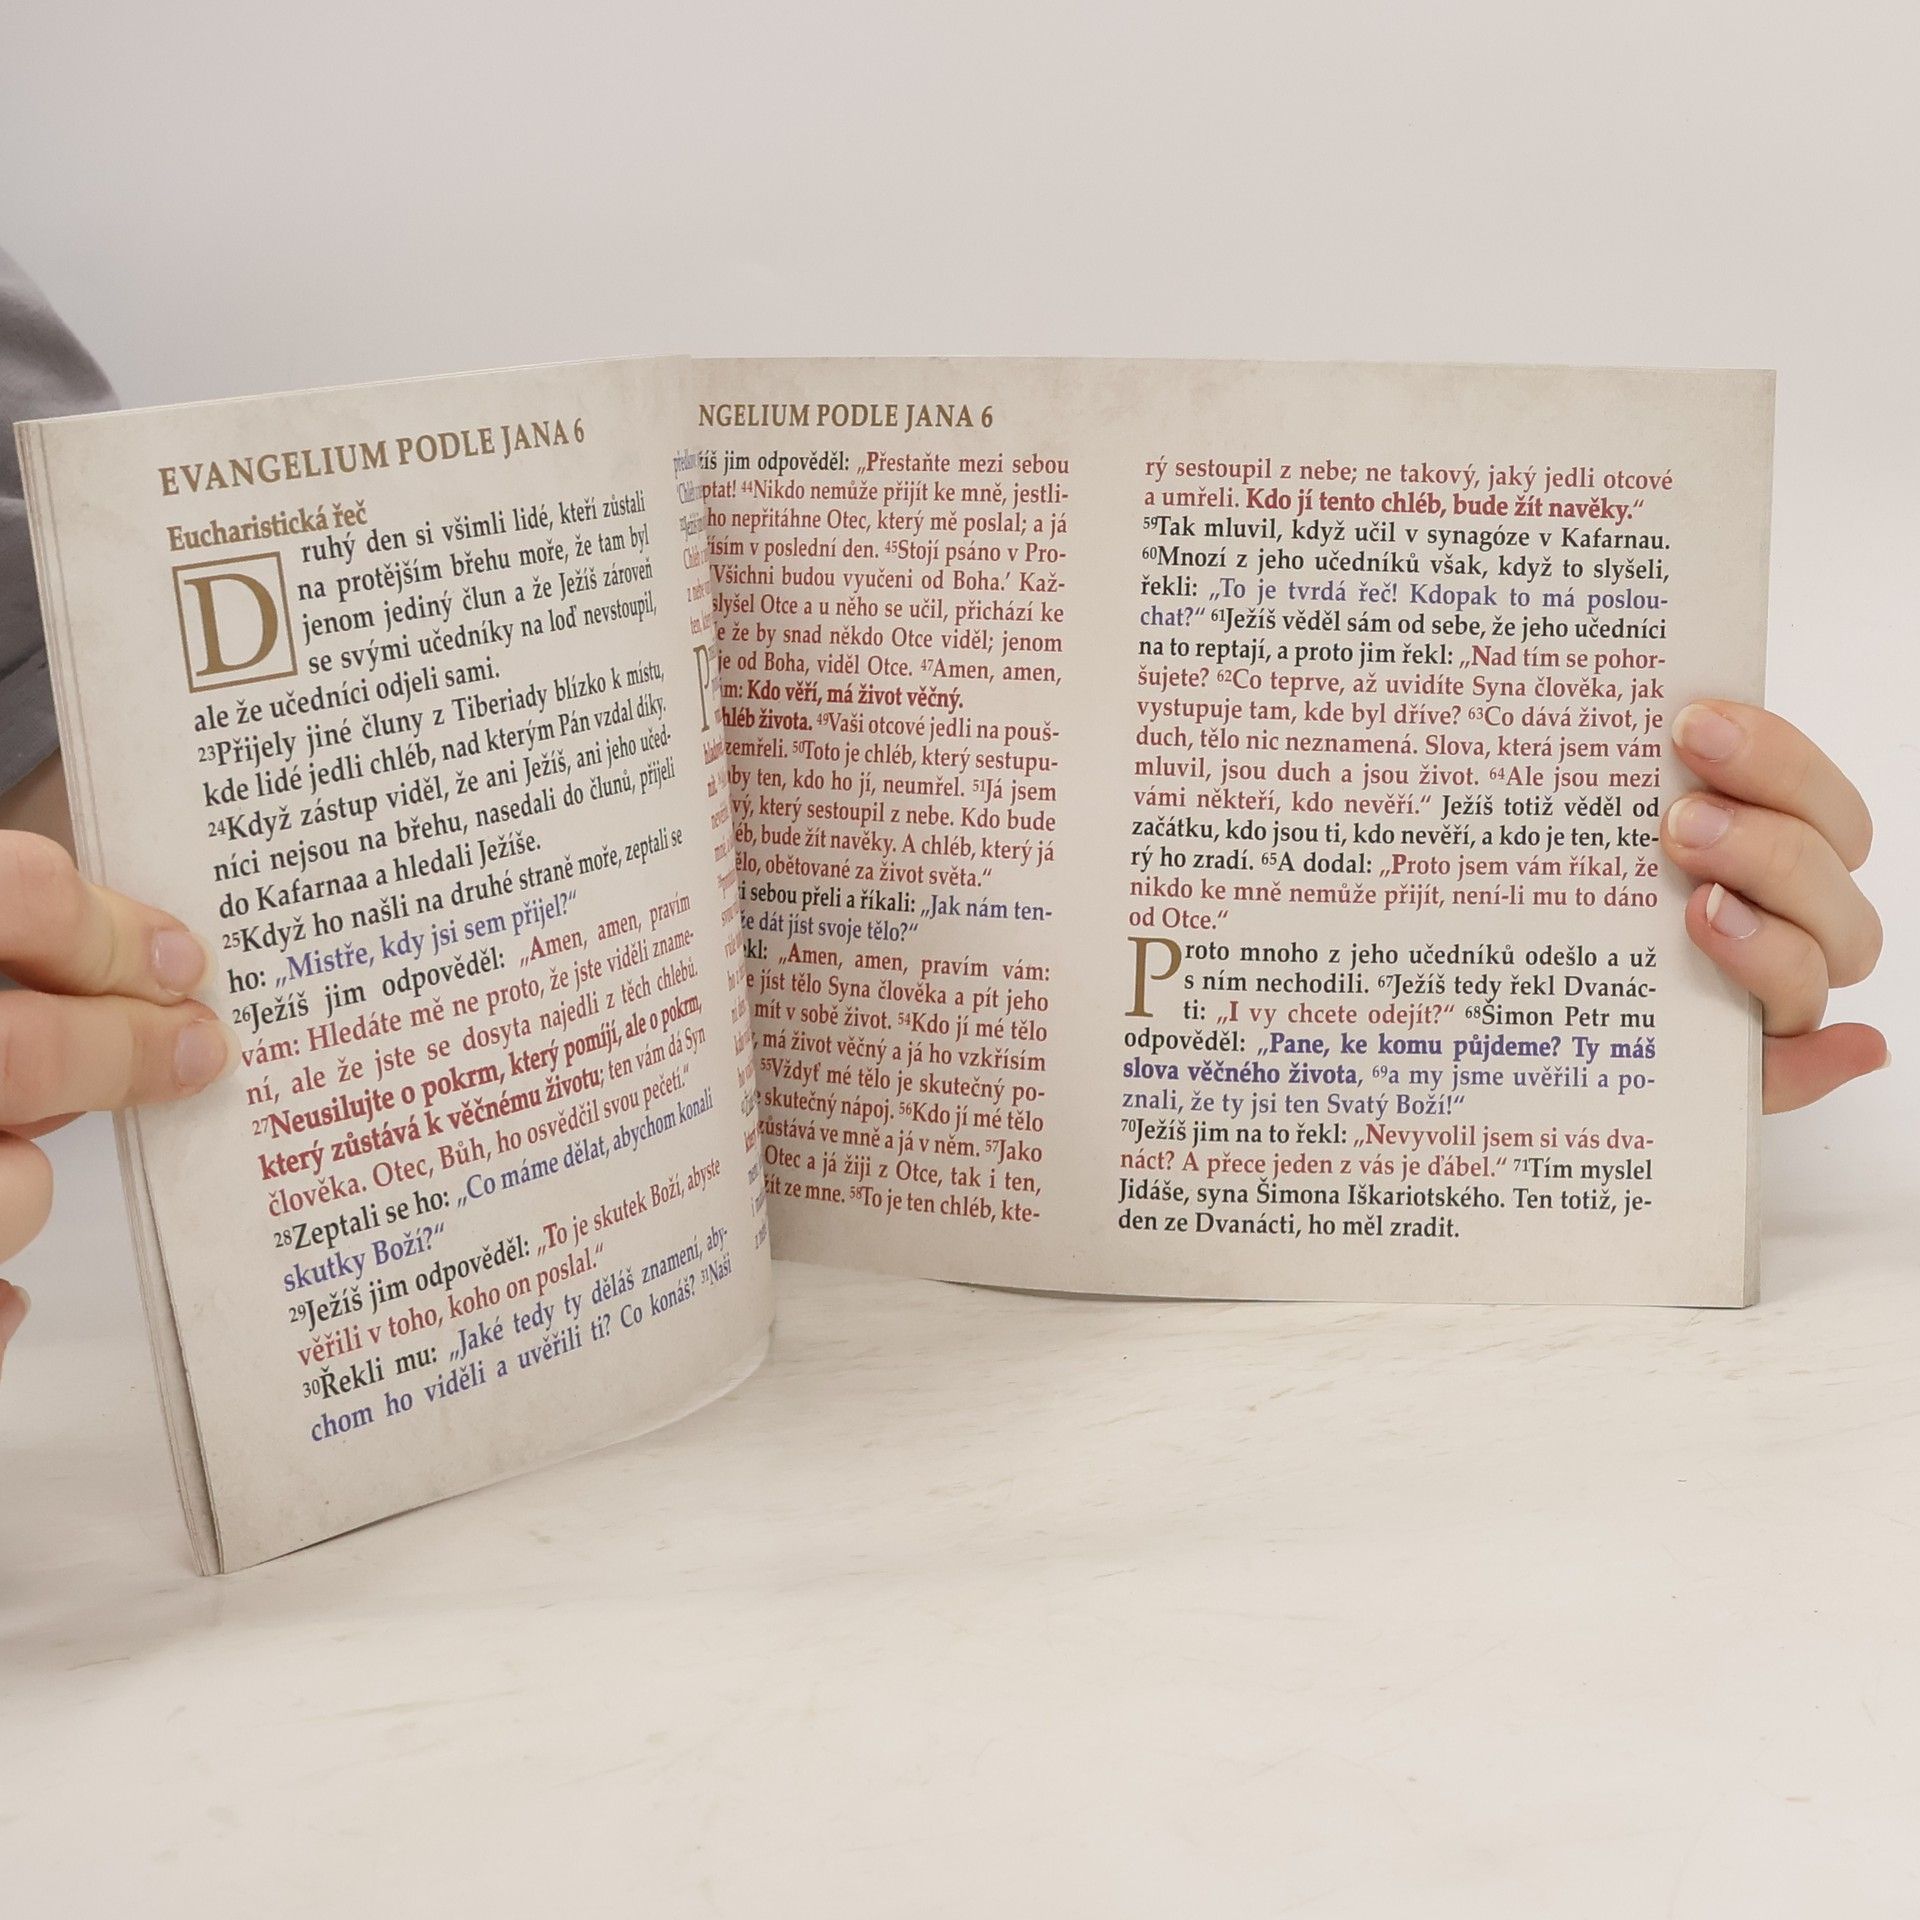 EVANGELIUM PODLE JANA 6
Eucharistická řeč
Druhý den si všimli lidé, kteří zůstali
na protějším břehu moře, že tam byl
jenom jediný člun a že Ježíš zároveň
se svými učedníky na loď nevstoupil,
ale že učedníci odjeli sami.
23Přijely jiné čluny z Tiberiady blízko k místu,
kde lidé jedli chléb, nad kterým Pán vzdal díky.
24Když zástup viděl, že ani Ježíš, ani jeho učed-
níci nejsou na břehu, nasedali do člunů, přijeli
do Kafarnaa a hledali Ježíše.
25Když ho našli na druhé straně moře, zeptali se
ho: „Mistře, kdy jsi sem přijel?“
26Ježíš jim odpověděl: „Amen, amen, pravím
vám: Hledáte mě ne proto, že jste viděli zname-
ní, ale že jste se dosyta najedli z těch chlebů.
27Neusilujte o pokrm, který pomíjí, ale o pokrm,
který zůstává k věčnému životu; ten vám dá Syn
člověka. Otec, Bůh, ho osvědčil svou pečetí.“
28Zeptali se ho: „Co máme dělat, abychom konali
skutky Boží?“
29Ježíš jim odpověděl: „To je skutek Boží, abyste
věřili v toho, koho on poslal.“
30Řekli mu: „Jaké tedy ty děláš znamení, aby-
chom ho viděli a uvěřili ti? Co konáš? 31Naši
NGELIUM PODLE JANA 6
íš jim odpověděl: „Přestaňte mezi sebou
ptat! 44Nikdo nemůže přijít ke mně, jestli-
ho nepřitáhne Otec, který mě poslal; a já
ísím v poslední den. 45Stojí psáno v Pro-
Všichni budou vyučeni od Boha.‘ Kaž-
slyšel Otce a u něho se učil, přichází ke
e že by snad někdo Otce viděl; jenom
je od Boha, viděl Otce. 47Amen, amen,
m: Kdo věří, má život věčný.
hléb života. 49Vaši otcové jedli na pouš-
zemřeli. 50Toto je chléb, který sestupu-
aby ten, kdo ho jí, neumřel. 51Já jsem
vý, který sestoupil z nebe. Kdo bude
éb, bude žít navěky. A chléb, který já
ělo, obětované za život světa.“
i sebou přeli a říkali: „Jak nám ten-
že dát jíst svoje tělo?“
kl: „Amen, amen, pravím vám:
e jíst tělo Syna člověka a pít jeho
mít v sobě život. 54Kdo jí mé tělo
, má život věčný a já ho vzkřísím
55Vždyť mé tělo je skutečný po-
skutečný nápoj. 56Kdo jí mé tělo
zůstává ve mně a já v něm. 57Jako
Otec a já žiji z Otce, tak i ten,
žít ze mne. 58To je ten chléb, kte-
rý sestoupil z nebe; ne takový, jaký jedli otcové
a umřeli. Kdo jí tento chléb, bude žít navěky.“
59Tak mluvil, když učil v synagóze v Kafarnau.
60Mnozí z jeho učedníků však, když to slyšeli,
řekli: „To je tvrdá řeč! Kdopak to má poslou-
chat?“ 61Ježíš věděl sám od sebe, že jeho učedníci
na to reptají, a proto jim řekl: „Nad tím se pohor-
šujete? 62Co teprve, až uvidíte Syna člověka, jak
vystupuje tam, kde byl dříve? 63Co dává život, je
duch, tělo nic neznamená. Slova, která jsem vám
mluvil, jsou duch a jsou život. 64Ale jsou mezi
vámi někteří, kdo nevěří.“ Ježíš totiž věděl od
začátku, kdo jsou ti, kdo nevěří, a kdo je ten, kte-
rý ho zradí. 65A dodal: „Proto jsem vám říkal, že
nikdo ke mně nemůže přijít, není-li mu to dáno
od Otce.“
Proto mnoho z jeho učedníků odešlo a už
s ním nechodili. 67Ježíš tedy řekl Dvanác-
ti: „I vy chcete odejít?“ 68Šimon Petr mu
odpověděl: „Pane, ke komu půjdeme? Ty máš
slova věčného života, 69a my jsme uvěřili a po-
znali, že ty jsi ten Svatý Boží!“
70Ježíš jim na to řekl: „Nevyvolil jsem si vás dva-
náct? A přece jeden z vás je ďábel.“ 71Tím myslel
Jidáše, syna Šimona Iškariotského. Ten totiž, je-
den ze Dvanácti, ho měl zradit.